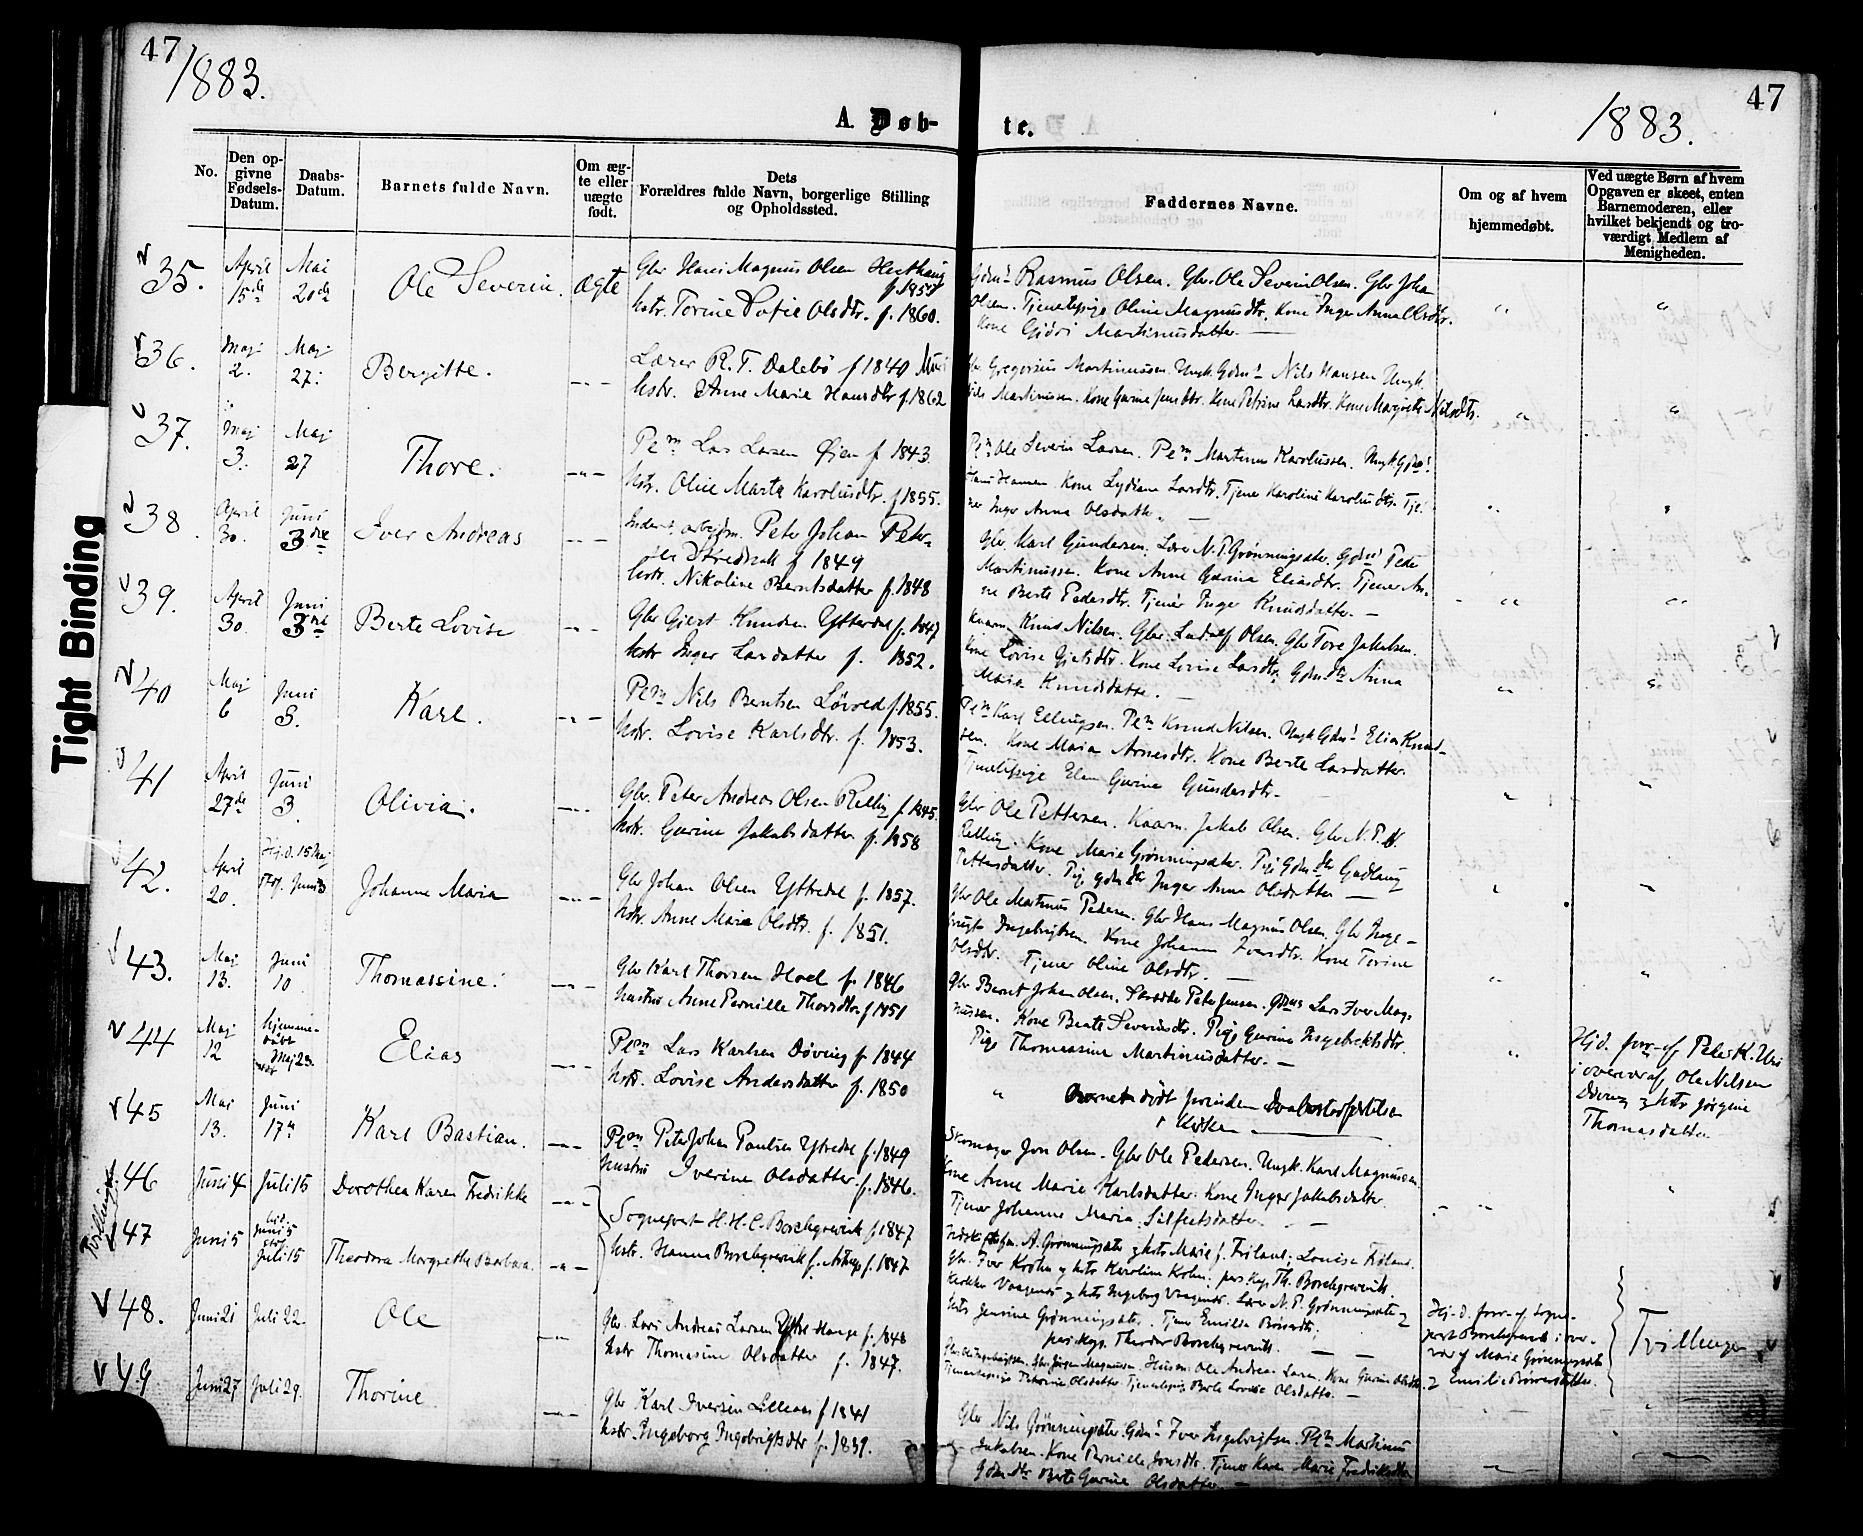 47
1883.
A. Døb-
te.
1883.
47
No.
Den op-
givne
Fødsels-
Datum.
Daabs-
Datum.
Barnets fulde Navn.
Om æg-
te eller
uægte
født.
Dets
Forældres fulde Navn, borgerlige Stilling
og Opholdssted.
Faddernes Navne.
Om og af hvem
hjemmedøbt.
Ved uægte Børn af hvem
Opgaven er skeet, enten
Barnemoderen, eller
hvilket bekjendt og tro-
værdigt Medlem af
Menigheden.
35. April 15de Mai 20de Ole Severin. ægte
Gbr Hans Magnus Olsen
Hstr. Torine Sofie Olsdtr. f. 1860.
Gdms Rasmus Olsen. Gbr. Ole Severin Olsen. Gbr Joha
Olsen. Tjenestepige Oline Magnusdtr. Kone Inger Anna Olsdtr.
Kone Martinusdatter.
36. Maj 2. Maj 27. Bergitte.
Lærer R. T. Dalebø f 1840
Hstr. Anne Marie Hansdtr f. 1862
Gregorius Martinussen. Ungk. Gdms Nils Hansen Ungk.
Nils Martinussen. Kone Gurine Jensdtr. Kone Petrine Larsdtr. Kone Margrete Nilsdtr.
37. Maj 3. Maj 27 Thore.
Pem Lars Larsen Øien f 1843.
Hstr. Oline Marta Karolusdtr. f 1855.
Pem Ole Severin Larsen. Pem Martinus Karolussen. Ungk Gdms
Hans Hansen Kone Lydiane Larsdtr. Tjener Karoline Karolusdtr. Tje-
ner Inger Anna Olsdatter.
38. April 30. Juni 3die Iver Andreas
arbejdm. Peter Johan Peter-
f 1849
Hstr. Nikoline Berntsdatter f. 1848
Gbr Karl Gundersen. Lærer N. P. Grønningsæter. Gdms Peder
Martinussen. Kone Anne Gurina Eliasdtr. Tjener An-
ne Berte Pedersdtr. Tjener Inger Knudsdatter. –
39. April 30. Juni 3die Berte Lovise
Gbr Gjert Knudsen Ytterdal f. 1847
Hstr Inger Larsdatter f. 1852.
Kaarm. Knud Nilsen. Gbr. Ludolf Olsen. Gbr Tore Jakobsen.
Kone Lovise Gjertsdtr. Kone Lovise Larsdtr. Gdms dtr Anna
Maria Knudsdatter. –
40 Maj 6 Juni 3. Karl.
Pem Nils Berntsen Løvold f. 1855.
Hstr. Lovise Karlsdtr. f. 1853.
Pem Karl Ellingsen. Pem Knud Nilsen. Ungk Gdms Elias Knud-
sen. Kone Maria Arnesdtr. Kone Berte Larsdatter.
Tjenestepige Elen Gurine Gundersdtr.–
41 April 27de Juni 3. Olivia.
Gbr. Peter Andreas Olsen Relling f. 1845.
Hstr. Gurine Jakobsdatter f. 1858
Gbr Ole Pettersen. Kaarm. Jakob Olsen. Gbr N. P. N.
Relling. Kone Marie Grønningsæter. Pige Gdms dtr Gudlaug
Pettersdatter. Pige gdms dtr Inger Anne Olsdatter –
42. April 20. Hj.d. 15 Maj Juni 3 Johanne Maria
Gbr Johan Olsen Ytredal f. 1857.
Hstr. Anne Marie Olsdtr. f. 1851.
Gbr Ole Martinus Pedersen. Gbr Hans Magnus Olsen. Gbr Inge-
brigt Ingebrigtsen. Kone Johanne Iversdtr. Kone Torine
Olsdtr. Tjener Oline Olsdtr. –
43. Maj 13. Juni 10 Thomassine.
Gbr Karl Thorsen Hoel f. 1846
Hustru Anne Pernille Thorsdtr. f 1851
Gbr Bernt Johan Olsen. Peter Jensen. gdms Lars Iver Mag-
nussen. Kone Beate Severinsdtr. Pige Gurine Ingebrektsdtr.
Pige Thomasine Martinusdatter. –
44 Maj 12 hjemme- døbt Maj 23. Elias
Pem Lars Karlsen Døving f 1844
Hstr. Lovise Andersdatter f. 1850
Barnet døde forinden Daabsstadfæstelse
i Kirken
Hj.d. forr. af Peter K. Uri
i overvær af Ole Nilsen
Døving & hstr Jørgine
Thomasdatter
45 Mai 13. Juni 17de Karl Bastian.
Pem Peter Johan Paulsen Ytredal f. 1849
Hustru Iverine Olsdatter. f. 1846.
Skomager Jon Olsen. Gbr Ole Pedersen. Ungk. Karl Magnussen.
Kone Anne Marie Karlsdatter. Kone Inger Jakobsdatter.
Tjener Johanne Maria Silfestsdatter. –
Tvillinger
46 Juni 4 Juli 15 Dorothea Karen Fredrikke
47 Juni 5 hjd. Juni 5 Juli 15 Theodora Margrethe Barbara.
Sognepræst H. H. C. Borchgrevink f. 1847
Hstr. Hanna Borchgrevink f. Astrup f. 1847
A. Grønningsæter & hstr Marie f. Friland; Louise Friland.
Gbr. Iver Krohn & hstr Karoline Krohn; pers kap. Th. Borchgrevink.
Kirkes. Vaagenes & hstr Ingeborg Vaagenes. Lærer N. P. Grønningsæter &
Hstr Jensine Grønningsæter. Tjener Emilie
pers kap. Theodor Borchgrevink. – –
Hj.d. forr. af Sogne-
præst Borchgrevink i over-
vær af Marie Grønningsæter
& Emilie
Tvillinger
48. Juni 21 Juli 22 Ole
Gbr. Lars Andreas Larsen Ytre Hauge f. 1848
Hstr Thomasine Olsdatter f. 1847.
Ole Andreas Larsen. Kone Gurine Olsdtr.
Tjenestepige Petrine Olsdatter. Tjenestepige Berte Lovise Olsdatter. –
49 Juni 27 Juli 29. Thorine
Gbr Karl Iversen Lillebø f 1841
Hstr. Ingeborg Ingebrigtsdtr f. 1839.
Gbr Nils Grønningsæter. Gdms Iver Ingebrigtsen. Pem Martinus
Jakobsen. Kone Pernille Jonsdtr. Tjener Karen Marie Fredriksdtr
Gdms dtr Berte Gurine Olsdatter –
Tight Binding